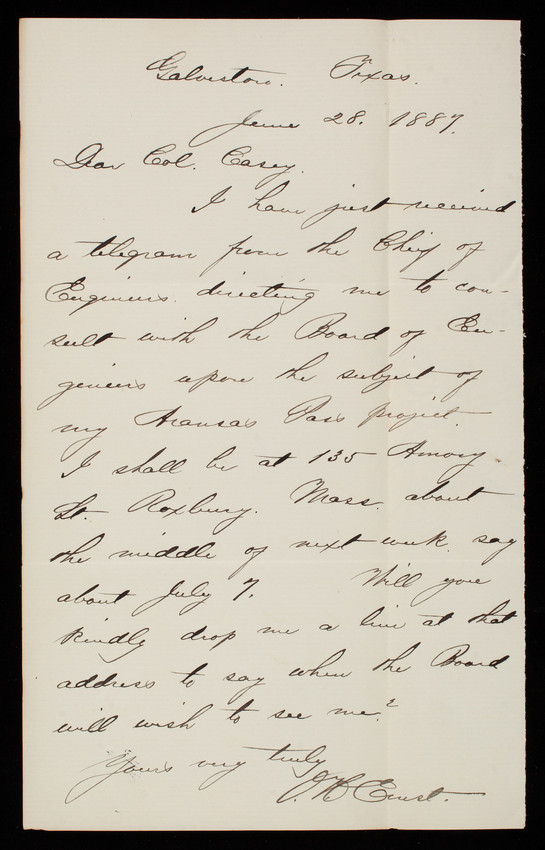 Galveston. Texas.
June 28. 1887.
Dear Col. Casey.
I have just received
a telegram from the Chief of
Engineers. directing me to con-
sult with the Board of En-
gineers upon the subject of
my Aransas Pass project.
I shall be at 135 Amory
St. Roxbury. Mass. about
the middle of next week. say
about July 7. Will you
kindly drop me a line at that
address to say when the Board
will wish to see me?
Yours very truly
O. H. Ernst.